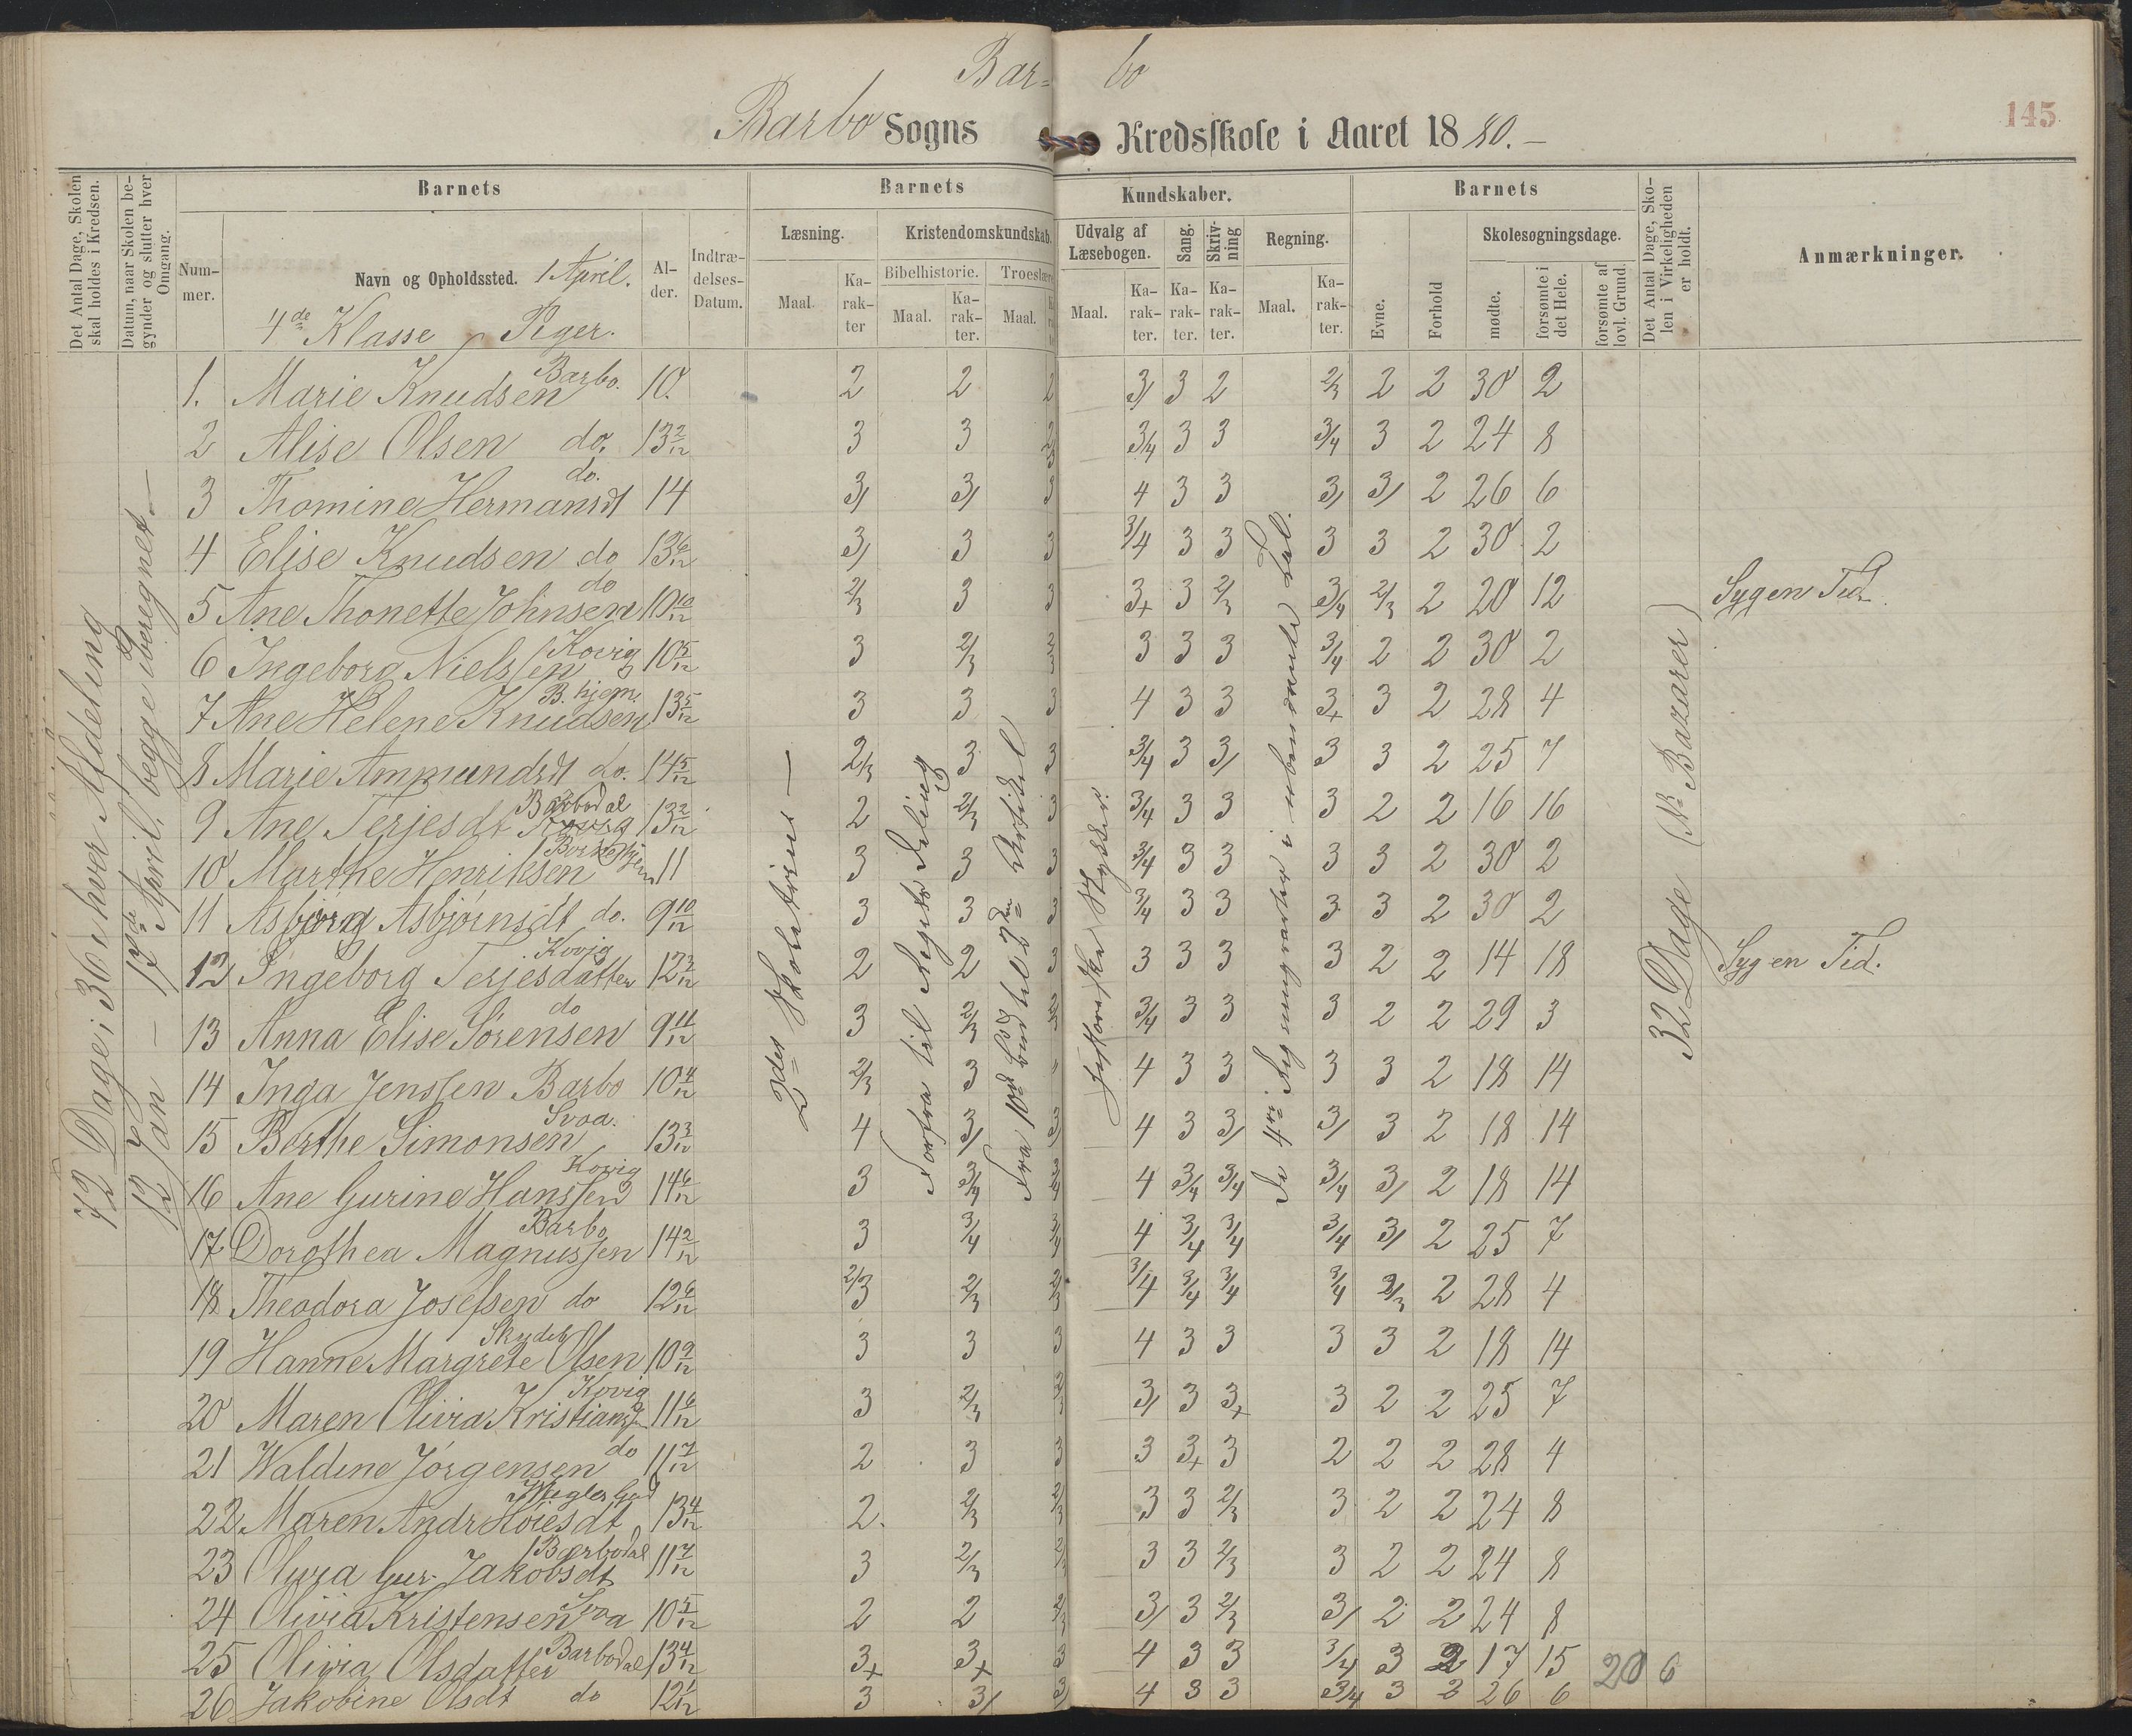 Bar= bo
145
Barbo Sogns Kredsskole i Aaret 1880.
Det Antal Dage, Skolen skal holdes i Kredsen.
Datum, naar Skolen begynder og slutter hver Omgang.
Barnets
Barnets Kundskaber.
Barnets
Det Antal Dage, Skolen i Virkeligheden er holdt.
Anmærkninger.
Nummer.
Navn og Opholdssted. 1 April.
4de Klasse Piger.
Alder.
Indtrædelses-Datum.
Læsning.
Maal.
Karakter
Kristendomskundskab.
Bibelhistorie.
Maal.
Karakter.
Troeslære
Maal.
Udvalg af Læsebogen.
Maal.
Karakter.
Sang.
Karakter.
Skrivning
Karakter.
Regning.
Maal.
Karakter.
Evne.
Forhold
Skolesøgningsdage.
mødte.
forsømte i det Hele.
forsømte af lovl. Grund.
72 Dage i 36 i hver Afdeling
12 Jan – 17de April, begge iberegnet
2det Skoletrin
Forfra til
Fra 10de Bud til 2den Artikel
Historiske Stykker.
De 4re Regningsarter i ubenævnte Tal.
32 Dage
1. Marie Knudsen Barbo. 10. 2 2 2 3/ 3 2 2/3 2 2 30 2
2 Alise Olsen do. 13 2/12 3 3 2/3 3/4 3 3 3/4 3 2 24 8
3 Thomine Hermansdt do. 14 3/ 3/ 3 4 3 3 3/ 3/ 2 26 6
4 Elise Knudsen do 13 6/12 3/ 3 3 3/4 3 3 3 3 2 30 2
5 Ane Thonette Johnsen do 10 10/12 2/3 3 3 3+ 3 2/3 3/4 2/3 2 20 12 Syg en Tid
6 Ingeborg Nielssen Kovig 10 5/12 3 2/3 2/3 3 3 3 3/4 2 2 30 2
7 Ane Helene Knudsen B. hjem. 13 5/12 3 3 3 4 3 3 3+ 3 2 28 4
8 Marie Ammundsdt do. 14 5/12 2/3 3 3 3/4 3 3/ 3 3 2 25 7
9 Ane Terjesdt Barbodal 13 2/12 2 2/3 3 3/4 3 3 3 2 2 16 16
10 Marthe Henriksen 11 3 3 3 3/4 3 3 3 3 2 30 2
11 Asbjørg Asbjørnsdt do. 9 10/12 3 3 3 3/4 3 3 3 3 2 30 2
12 Ingeborg Terjesdatter Kovig 12 3/12 2 2 3 3 3 3 3 2 2 14 18 Syg en Tid.
13 Anna Elise Sørensen do 9 11/12 3 2/3 2/3 3/4 3 3 3 2 2 29 3
14 Inga Jenssen Barbo 10 4/12 2/3 3 " 4 3 3 3 3 2 18 14
15 Berthe Simonsen Svoa. 13 3/12 4 3/ 3/ 4 3 3/ 3/ 3 2 18 14
16 Ane Gurine Hanssen Kovig 14 6/12 3 3/4 3/4 4 3/4 3/4 3/4 3/ 2 18 14
17 Dorothea Magnussen Barbo 14 2/12 3 3/4 3/4 4 3/4 3/4 3/4 3/ 2 25 7
18 Theodora Josefsen do 12 6/12 2/3 2/3 2/3 3/4 3/4 3/4 3/4 2/3 2 28 4
19 Hanne Margrete Olsen 10 9/12 3 3 3 4 3 3 3 3 2 18 14
20 Maren Olivia Kristians Kovig 11 6/12 3 2/3 2/3 3/ 3 3+ 3 2 2 25 7
21 Waldine Jørgensen do 11 7/12 2 3 3 3 3+ 3 2 2 2 28 4
22 Maren Andr Høiesdt 13 4/12 2. 2/3 2/3 3 3 2/3 3 2 2 24 8
23 Gur. Jakobsdt Barbodal 11 7/12 3 2/3 2/3 3 3 2/3 3 2 2 24 8
24 Olivia Kristensen Svoa 10 5/12 2 2 2/3 3/ 3 2/3 3/ 2 2 24 8
25 Olivia Olsdatter Barbodal 13 4/12 3+ 3+ 3 4 3 3 3/4 3 2 17 15 20 6
26 Jakobine Olsdt do 12 1/12 3 3/ 3/ 4 3 3 3/4 3 2 26 6